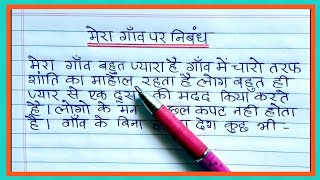 मेरा गाँव पर निबंध
मेरा गाँव बहुत प्यारा है गाँव में चारो तरफ
शांति का माहौल रहता है लोग बहुत ही
प्यार से एक दूसरे की मदद किया करते
है। लोगो के मन कपट नही होता
है। गाँव के बिना देश कुछ भी -